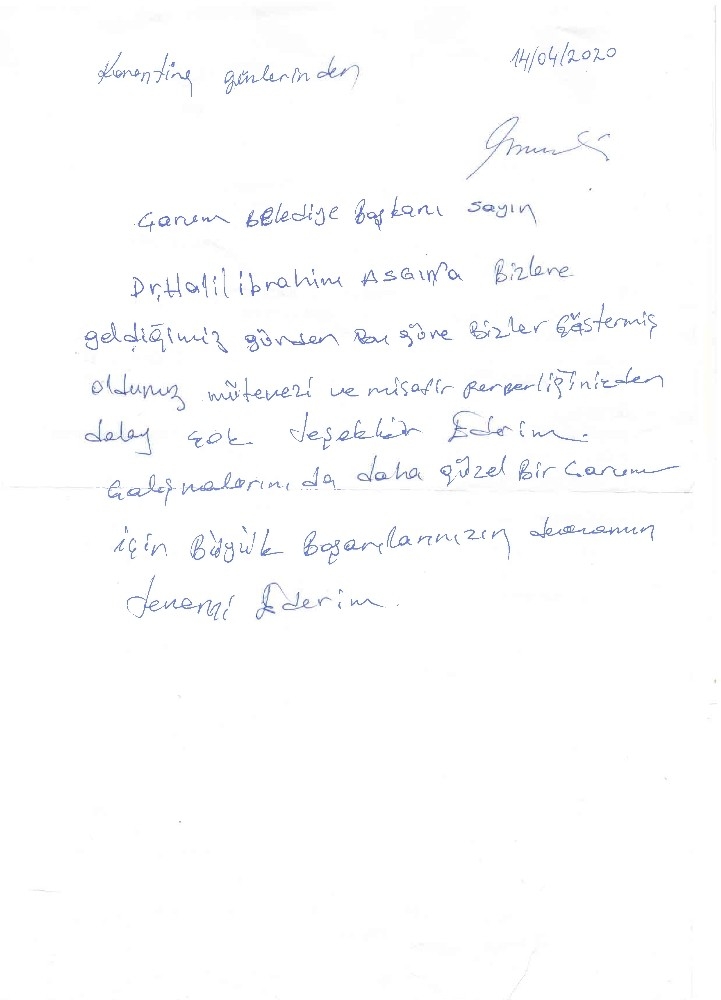 Karantina günlerinden
14/04/2020
Çorum Belediye Başkanı Sayın
Dr. Halil ibrahim AŞGIN'a Bizlere
geldiğimiz günden Bu güne Bizler Göstermiş
oldunuz mütevezi ve misafir perperliğinizden
dolay çok teşekkür Ederim.
Çalışmalarını da daha güzel Bir Çorum
için Büyük Başarılarınızın devamının
temenni Ederim.